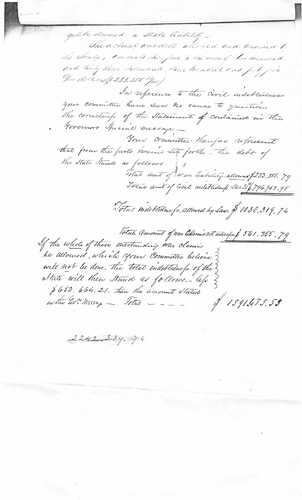 yet be deemed a State liability.
The actual war debt allowed and audited by
the State, amounts therefore to two hundred
and thirty three thousand, three hundred and fifty five
79/100 dollars ($233.355 79/100)
In reference to the civil indebtedness
your committee have seen no cause to question
the correctness of the Statement of contained in the
Governors Special message.—
Your Committee therefore represent
that from the facts herein Set forth, the debt of
the State Stands as follows
Total Amt of War liability, allowed $233,355.79
Total amt of Civil indebtedness 796,963.95
Total indebtedness, allowed by Law, $1030,319.74
Total Amount of War $561,355.79
If the whole of these outstanding war claims
be allowed, which your Committee believe
will not be done, the total indebtedness of the
State will then Stand as follows — less
$650,664.21 than the amount Stated
in the Gov. Message — Total — — — — $1591675.53